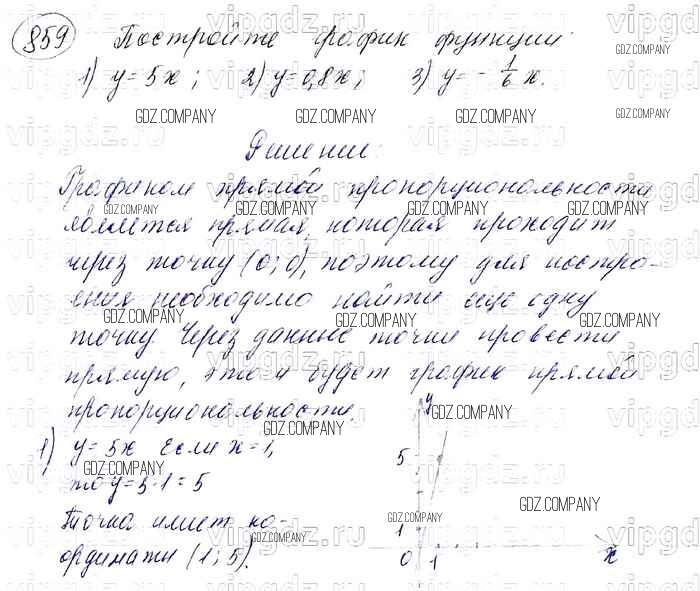 859 Постройте график функции
1) y = 5x; 2) y = 0,8x; 3) y = - 1/6 x.
Решение:
Графиком прямой пропорциональности
является прямая, которая проходит
через точку (0; 0), поэтому для постро-
ения необходимо найти еще одну
точку. Через данные точки провести
прямую, это и будет график прямой
пропорциональности.
1) y = 5x Если x = 1,
то y = 5·1 = 5
Точка имеет ко-
ординаты (1; 5).
y
5
1
0 1 x
GDZ.COMPANY
vipgdz.ru